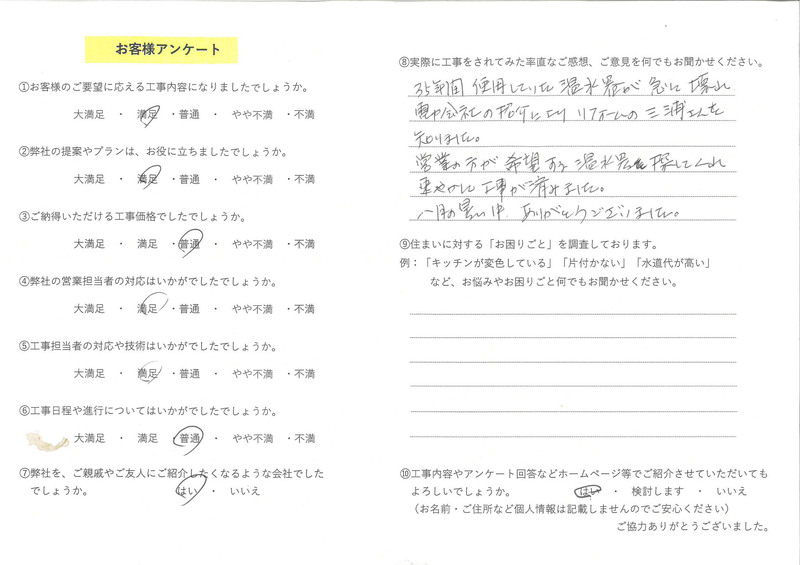 お客様アンケート
①お客様のご要望に応える工事内容になりましたでしょうか。
大満足 ・ 満足 ・普通 ・ やや不満 ・不満
②弊社の提案やプランは、お役に立ちましたでしょうか。
大満足 ・ 満足 ・普通 ・ やや不満 ・不満
③ご納得いただける工事価格でしたでしょうか。
大満足 ・ 満足 ・普通 ・ やや不満 ・不満
④弊社の営業担当者の対応はいかがでしたでしょうか。
大満足 ・ 満足 ・普通 ・ やや不満 ・不満
⑤工事担当者の対応や技術はいかがでしたでしょうか。
大満足 ・ 満足 ・普通 ・ やや不満 ・不満
⑥工事日程や進行についてはいかがでしたでしょうか。
大満足 ・ 満足 ・普通 ・ やや不満 ・不満
⑦弊社を、ご親戚やご友人にご紹介したくなるような会社でした
でしょうか。 はい ・ いいえ
⑧実際に工事をされてみた率直なご感想、ご意見を何でもお聞かせください。
35年間 使用していた 温水器が 急に 壊れ
電力会社の紹介により リフォームの三浦さんを
知りました。
営業の方が 希望する 温水器を 探してくれ
速やかに 工事が 済みました。
八月の暑い中 ありがとうございました。
⑨住まいに対する「お困りごと」を調査しております。
例：「キッチンが変色している」「片付かない」「水道代が高い」
など、お悩みやお困りごと何でもお聞かせください。
⑩工事内容やアンケート回答などホームページ等でご紹介させていただいても
よろしいでしょうか。 はい ・ 検討します ・ いいえ
（お名前・ご住所など個人情報は記載しませんのでご安心ください）
ご協力ありがとうございました。